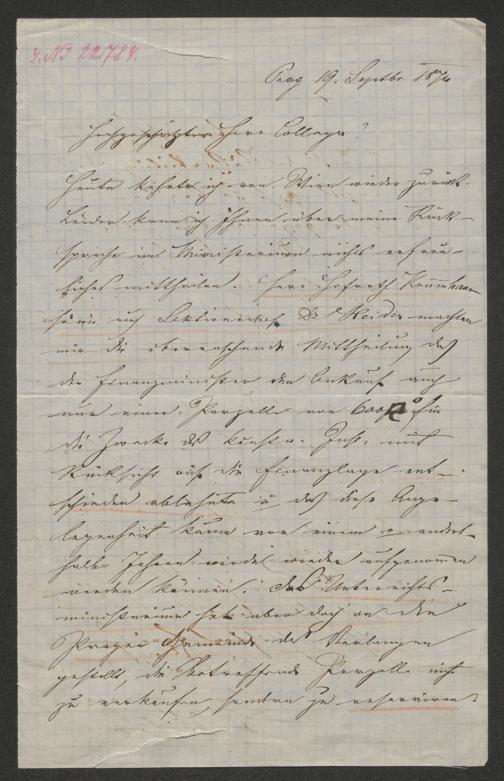 J.N 22.788.
Prag 19. Septbr 1874
Hochgeschätzter Herr College!
Heute kehrte ich von Wien wieder zurück.
Leider kann ich Ihnen über meine Rück-
sprache im Ministerium nichts erfreu-
liches mittheilen. Herr Hofrath Krumhaar
sowie auch Sektionschef Dr Heider machten
mir die überraschende Mittheilung daß
der Finanzminister den Ankauf auch
nur einer Parzelle von 600 für
die Zwecke des Inst. mit
Rücksicht auf die Finanzlage ent-
schieden ablehnte u daß diese Ange-
legenheit kaum vor einem o andert-
halb Jahren wieder aufgenommen
werden können. Das Unterrichts-
ministerium hat aber doch an die
Prager Gemeinde das Verlangen
gestellt, die betreffende Parzelle nicht
zu verkaufen, sondern zu reserviren.